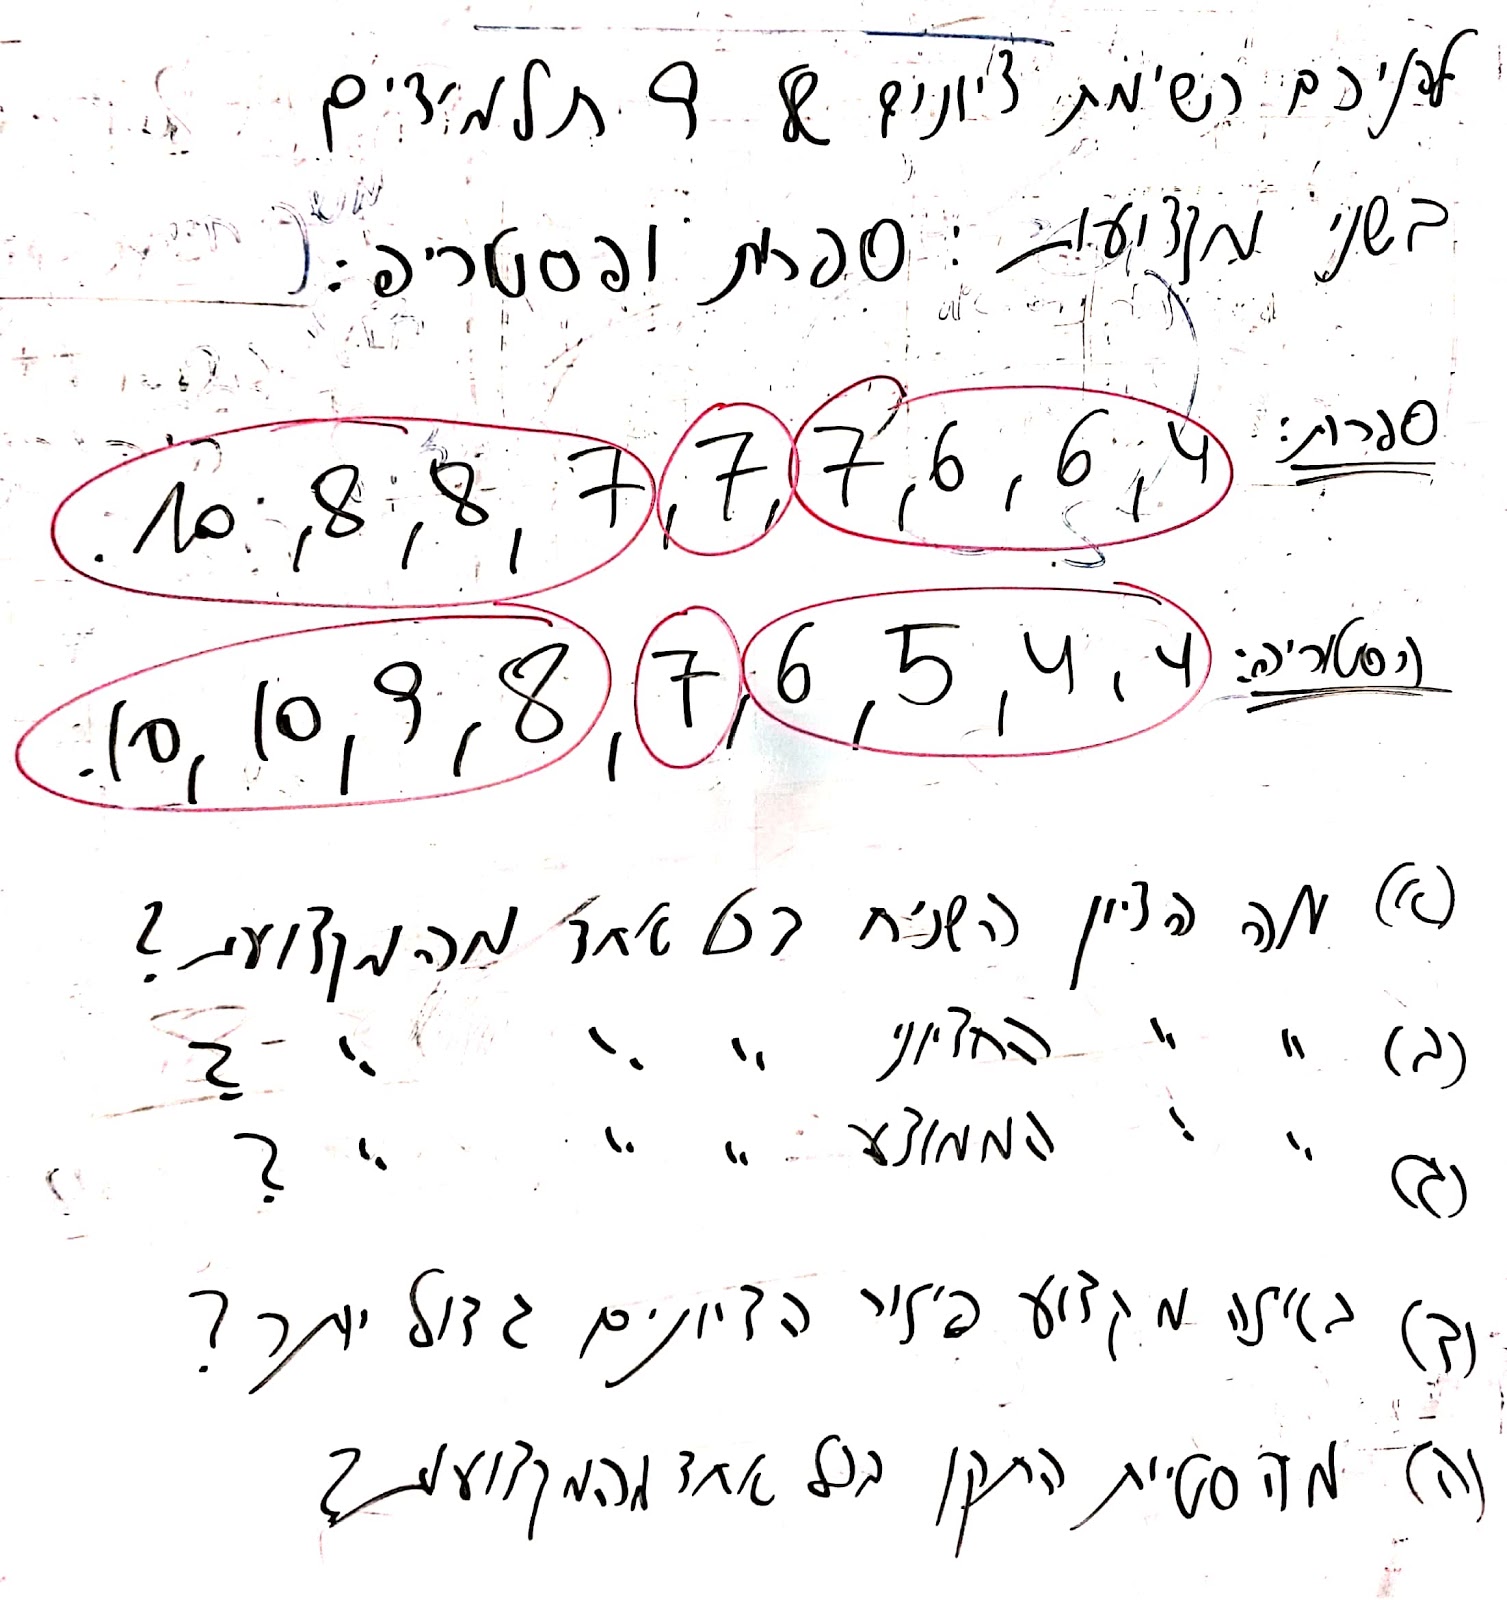 לפניכם רשימת ציונים של 9 תלמידים
בשני מקצועות: ספרות והסטוריה:
ספרות: 4, 6, 6, 7, 7, 7, 8, 8, 10.
הסטוריה: 4, 4, 5, 6, 7, 8, 9, 10, 10.
(א) מה הציון השכיח בכל אחד מהמקצועות?
(ב) " " החציוני " " " ?
(ג) " " הממוצע " " " ?
(ד) באיזה מקצוע פיזור הציונים גדול יותר?
(ה) מה סטיית התקן בכל אחד מהמקצועות?